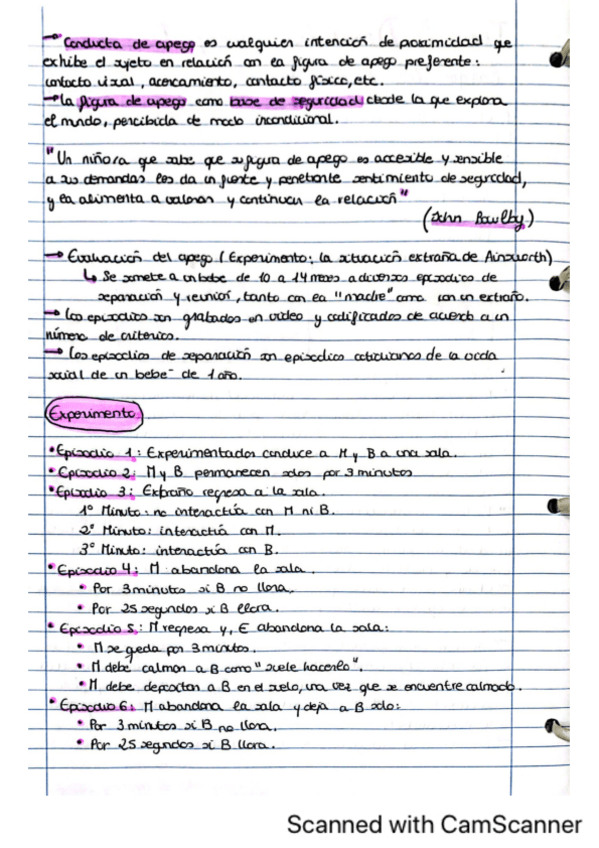 → Conducta de apego es cualquier intención de proximidad que
exhibe el sujeto en relación con la figura de apego preferente:
contacto visual, acercamiento, contacto físico, etc.
→ La figura de apego como base de seguridad desde la que explora
el mundo, percibida de modo incondicional.
"Un niño/a que sabe que su figura de apego es accesible y sensible
a sus demandas les da un fuerte y penetrante sentimiento de seguridad,
y la alimenta a valorar y continuar la relación"
(John Bowlby)
→ Evaluación del apego (Experimento: la situación extraña de Ainsworth)
↳ Se somete a un bebe de 10 a 14 meses a diversos episodios de
separación y reunión, tanto con la "madre" como con un extraño.
→ Los episodios son grabados en video y codificados de acuerdo a un
número de criterios.
→ Los episodios de separación son episodios cotidianos de la vida
social de un bebé de 1 año.
Experimento
• Episodio 1: Experimentador conduce a M y B a una sala.
• Episodio 2: M y B permanecen solos por 3 minutos
• Episodio 3: Extraño regresa a la sala.
1º Minuto: no interactúa con M ni B.
2º Minuto: interactúa con M.
3º Minuto: interactúa con B.
• Episodio 4: M abandona la sala.
• Por 3 minutos si B no llora.
• Por 25 segundos si B llora.
• Episodio 5: M regresa y, E abandona la sala:
• M se queda por 3 minutos.
• M debe calmar a B como "suele hacerlo".
• M debe depositar a B en el suelo, una vez que se encuentre calmado.
• Episodio 6: M abandona la sala y deja a B solo:
• Por 3 minutos si B no llora.
• Por 25 segundos si B llora.
Scanned with CamScanner